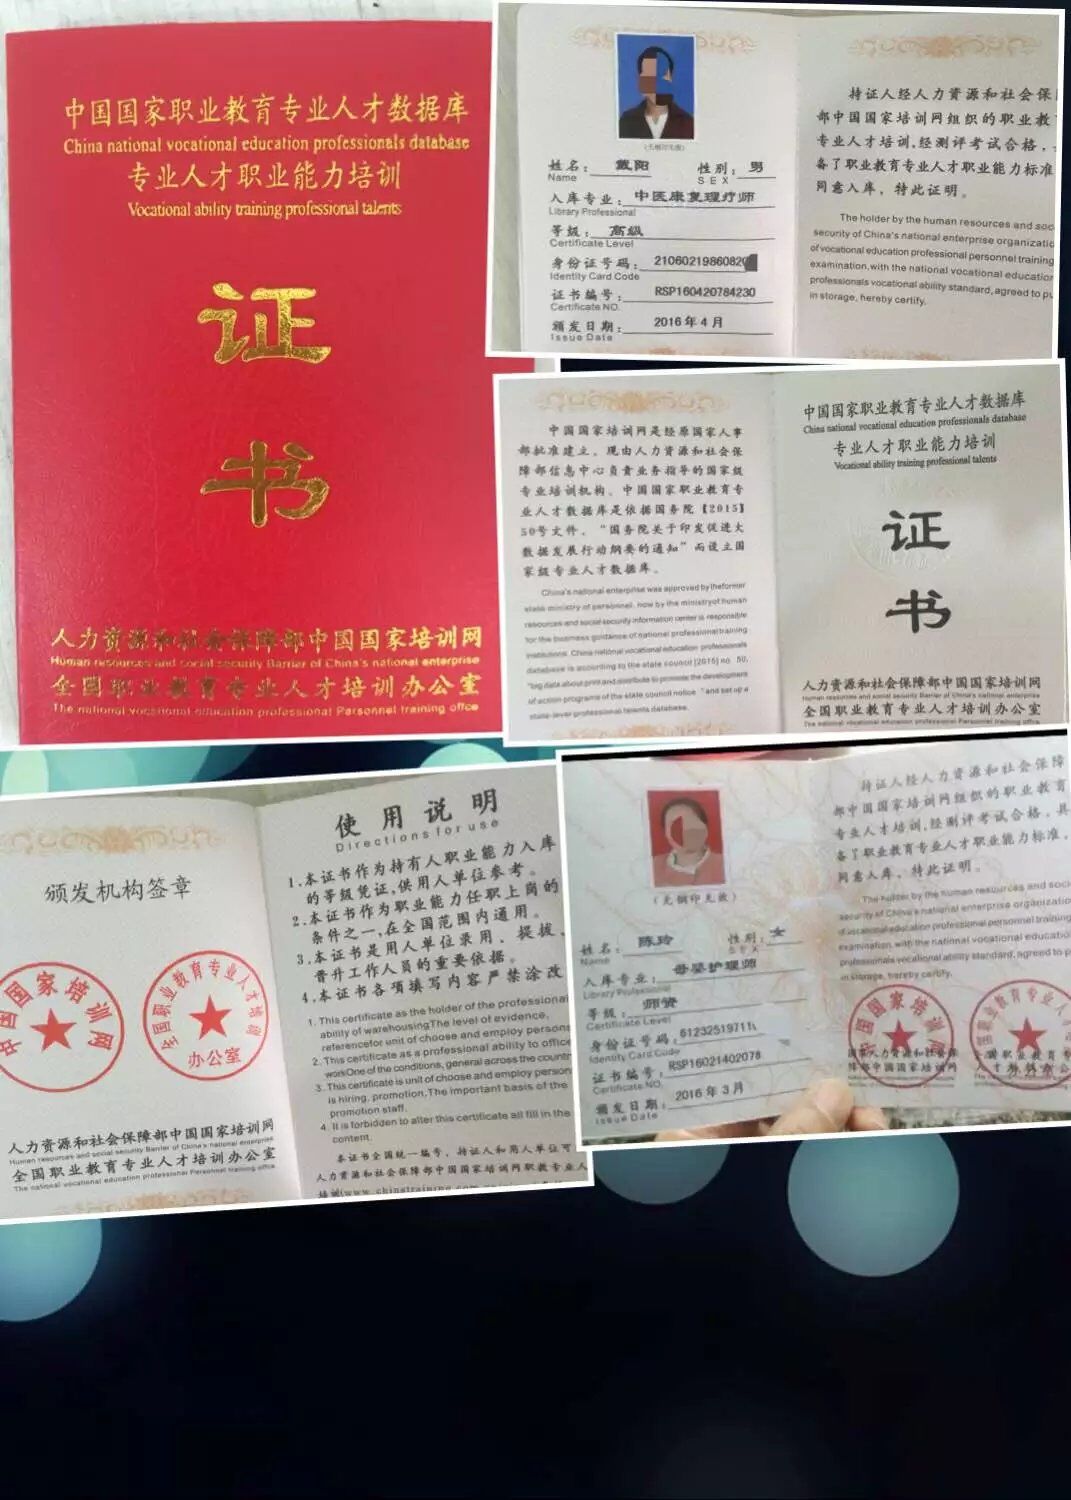 中国国家职业教育专业人才数据库
China national vocational education professionals database
专业人才职业能力培训
Vocational ability training professional talents
证
书
人力资源和社会保障部中国国家培训网
Human resources and social security Barrier of China's national enterprise
全国职业教育专业人才培训办公室
The national vocational education professional Personnel training offce
(无钢印无效)
姓名: 戴阳 性别: 男
Name SEX
入库专业: 中医康复理疗师
Library Professional
等级: 高级
Certificate Level
身份证号码: 2106021986082
Identity Card Code
证书编号: RSP160420784230
Certificate NO.
颁发日期: 2016年4月
Issue Date
持证人经人力资源和社会保
部中国国家培训网组织的职业教
专业人才培训,经测评考试合格,
备了职业教育专业人才职业能力标准
同意入库，特此证明。
The holder by the human resources and soc
security of China's national enterprise organizatio
of vocational education professional personnel training
examination, with the national vocational education
professionals vocational ability standard, agreed to pu
in storage, hereby certify.
中国国家培训网是经原国家人事
部批准建立，现由人力资源和社会保
障部信息中心负责业务指导的国家级
专业培训机构。中国国家职业教育专
业人才数据库是依据国务院【2015】
50号文件，“国务院关于印发促进大
数据发展行动纲要的通知”而设立国
家级专业人才数据库。
China's national enterprise was approved by theformer
state ministry of personnel, now by the ministryof human
resources and social security information center is responsible
for the business guidance of national professional training
institutions. China national vocational education professionals
database is according to the state council [2015] no. 50,
"big data about print and contribute to promote the development
of action programs of the state council notice " and set up a
state-level professional talents database.
中国国家职业教育专业人才数据库
China national vocational education professionals database
专业人才职业能力培训
Vocational ability training professional talents
证
书
人力资源和社会保障部中国国家培训网
Human resources and social security Barrier of China's national enterprise
全国职业教育专业人才培训办公室
The national vocational education professional Personnel training office
颁发机构签章
中国国家培训网
全国职业教育专业人才培训
办公室
人力资源和社会保障部中国国家培训网
Human resources and social security Barrier of China's national enterprise
全国职业教育专业人才培训办公室
The national vocational education professional Personnel training office
使用说明
Directions for use
1.本证书作为持有人职业能力入库
的等级凭证,供用人单位参考。
2.本证书作为职业能力任职上岗的
条件之一,在全国范围内通用。
3.本证书是用人单位录用、提拔、
晋升工作人员的重要依据。
4.本证书各项填写内容严禁涂改
1. This certificate as the holder of the professional
ability of warehousingThe level of evidence,
referencefor unit of choose and employ persons
2. This certificate as a professional ability to office
workOne of the conditions, general across the country
3. This certificate is unit of choose and employ person
is hiring, promotion,The important basis of the
promotion staff.
4. It is forbidden to alter this certificate all fill in the
content.
本证书全国统一编号，持证人和用人单位可
人力资源和社会保障部中国国家培训网职教专业人
(无钢印无效)
姓名: 陈玲 性别: 女
Name SEX
入库专业: 母婴护理师
Library Professional
等级: 师资
Certificate Level
身份证号码: 61232519711
Identity Card Code
证书编号: RSP16021402078
Certificate NO.
颁发日期: 2016年3月
Issue Date
持证人经人力资源和社会保障
部中国国家培训网组织的职业教育
专业人才培训,经测评考试合格，具
备了职业教育专业人才职业能力标准,
同意入库，特此证明。
The holder by the human resources and soci
security of China's national enterprise organization
of vocational education professional personnel training
examination, with the national vocational education
professionals vocational ability standard, agreed to p
in storage, hereby certify.
中国国家培训网
全国职业教育专业人才